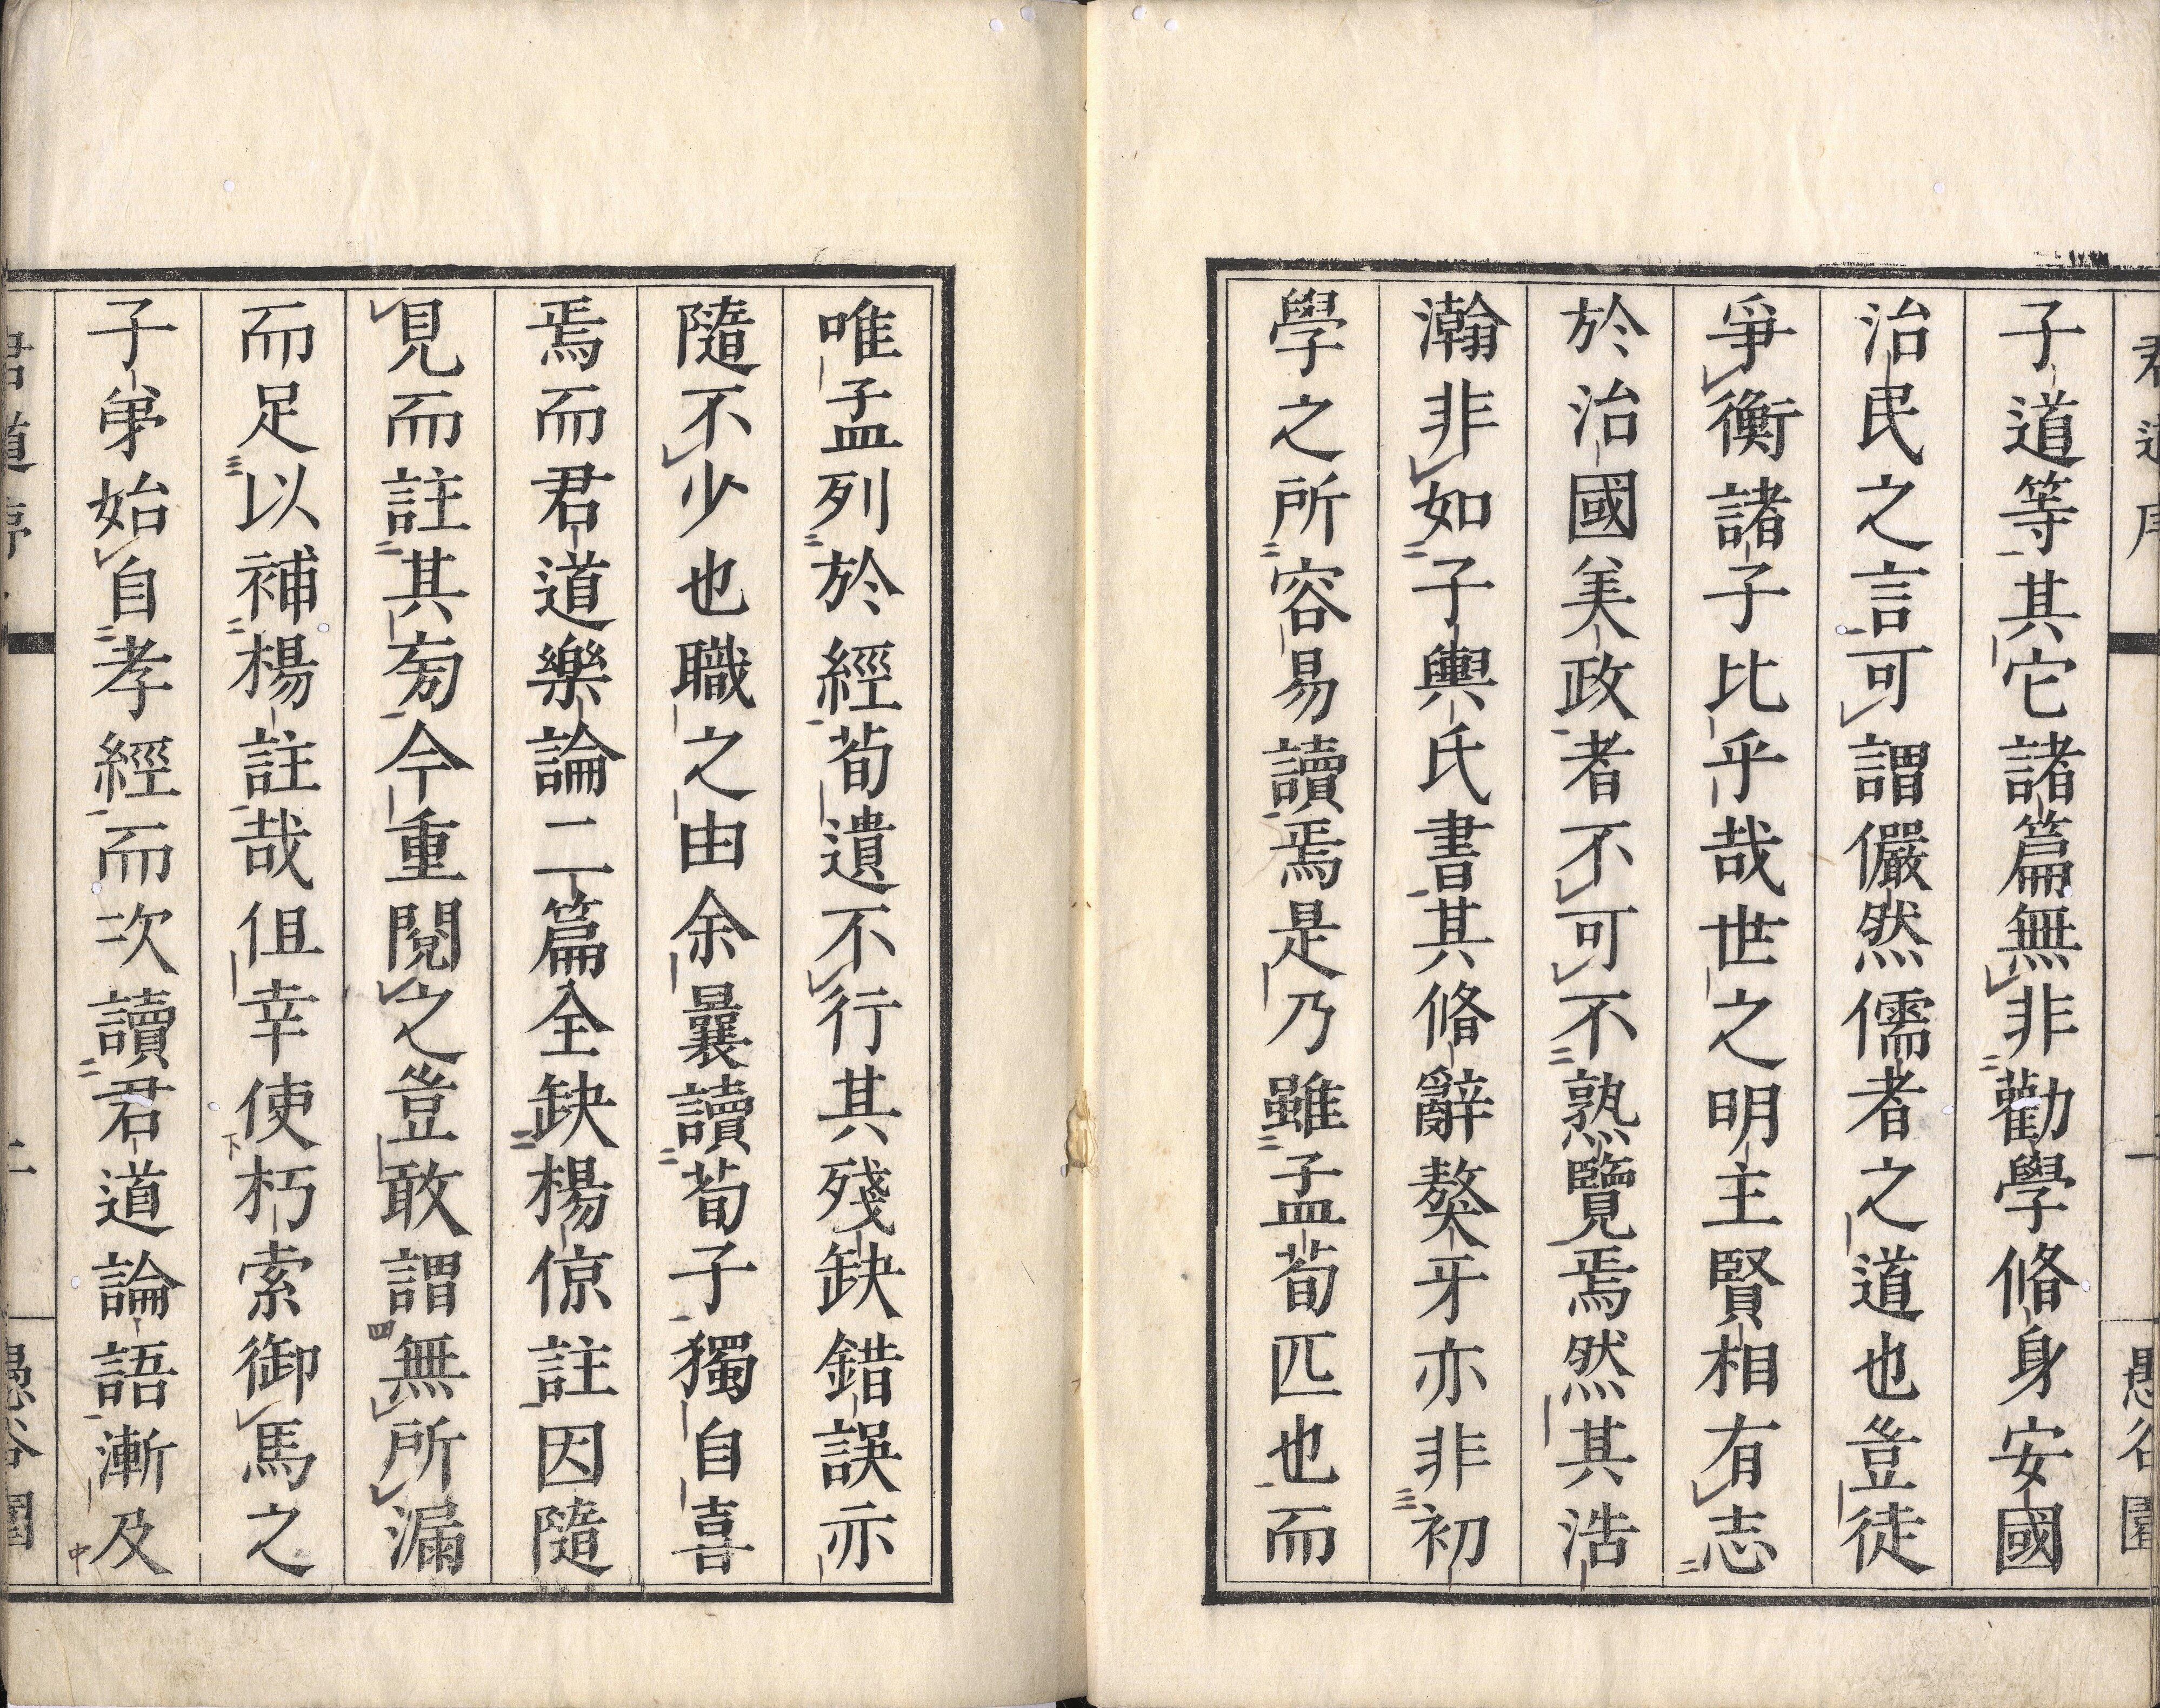 君道序
一
愚谷園
子道等其它諸篇無非勸學脩身安國
治民之言可謂儼然儒者之道也豈徒
爭衡諸子比乎哉世之明主賢相有志
於治國美政者不可不熟覽焉然其浩
瀚非如子輿氏書其脩辭獒牙亦非初
學之所容易讀焉是乃雖孟荀匹也而
唯孟列於經荀遺不行其殘缺錯誤亦
隨不少也職之由余曩讀荀子獨自喜
焉而君道樂論二篇全缺楊倞註因隨
見而註其旁今重閱之豈敢謂無所漏
而足以補楊註哉但幸使朽索御馬之
子弟始自孝經而次讀君道論語漸及
君道序
二
愚谷園